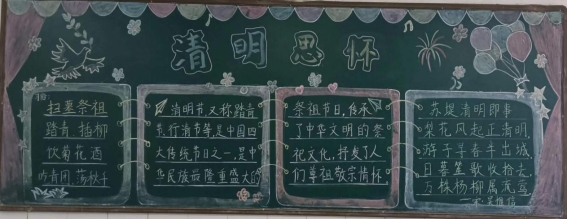 清明思怀
扫墓祭祖
踏青、插柳
饮菊花酒
吟青团、荡秋千
清明节又称踏青
节、行清节等,是中国四
大传统节日之一,是中
华民族最隆重盛大的
祭祖节日,传承
了中华文明的祭
祀文化,抒发了人
们尊祖敬宗情怀
苏堤清明即事
梨花风起正清明,
游子寻春半出城
日暮笙歌收拾去
万株杨柳属流莺